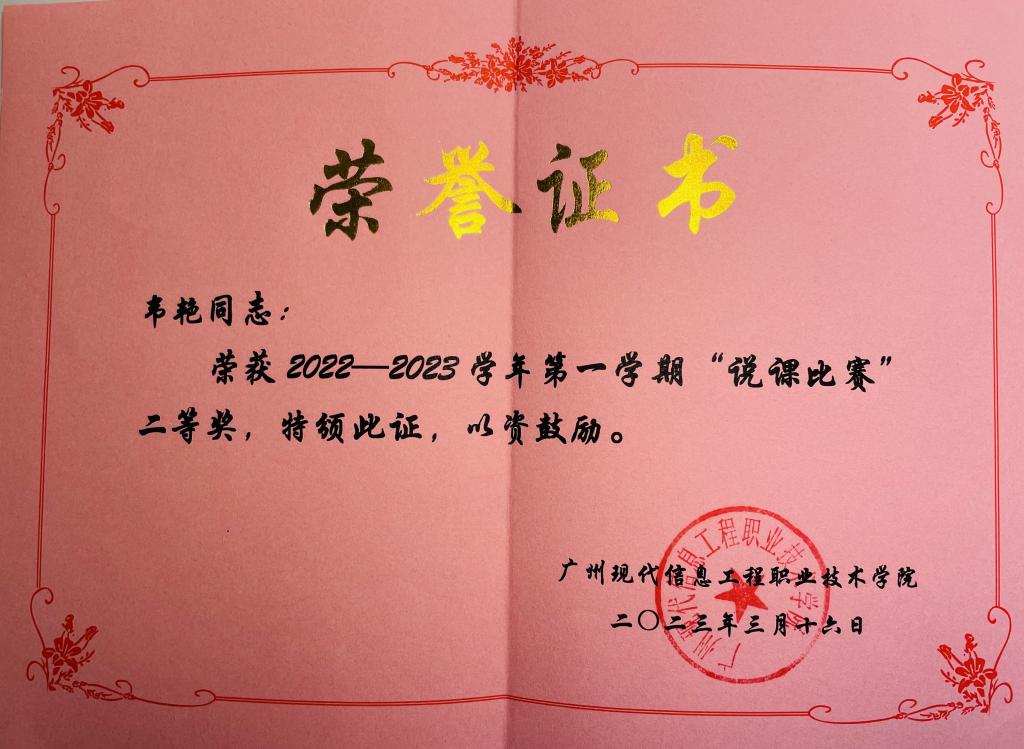 荣誉证书
韦艳同志：
荣获2022—2023学年第一学期“说课比赛”
二等奖，特颁此证，以资鼓励。
广州现代信息工程职业技术学院
二〇二三年三月十六日
广州现代信息工程职业技术学院